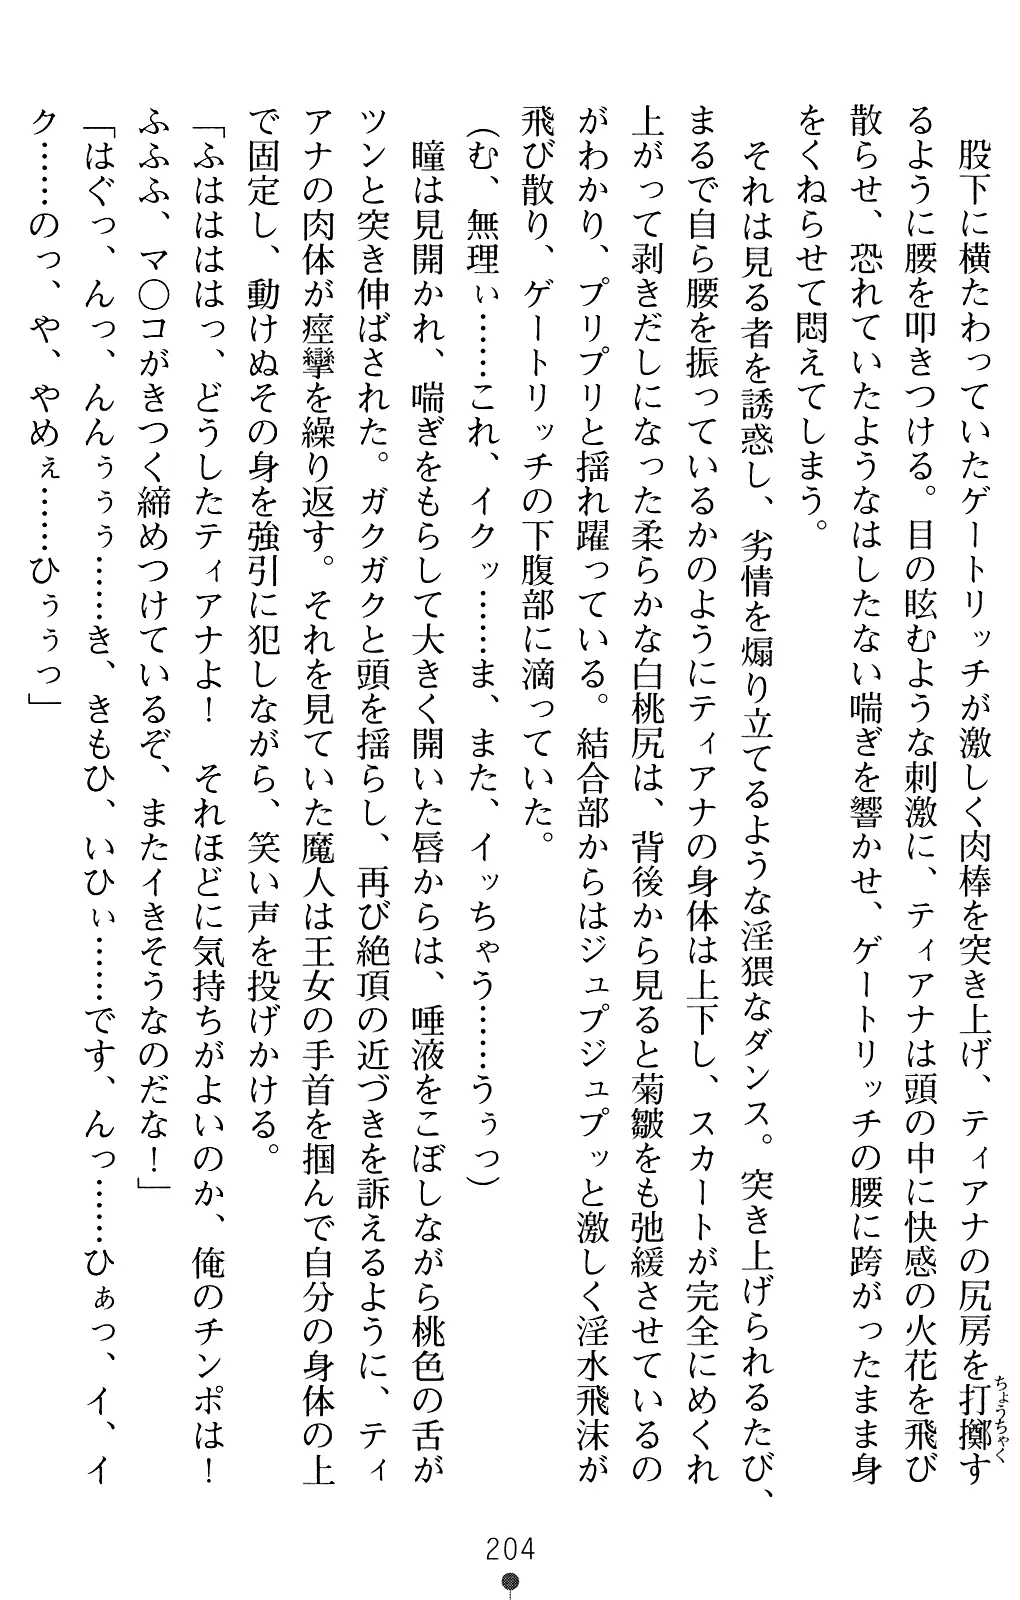 股下に横たわっていたゲートリッチが激しく肉棒を突き上げ、ティアナの尻房を打擲す
ちょうちゃく
るように腰を叩きつける。目の眩むような刺激に、ティアナは頭の中に快感の火花を飛び
散らせ、恐れていたようなはしたない喘ぎを響かせ、ゲートリッチの腰に跨がったまま身
をくねらせて悶えてしまう。
それは見る者を誘惑し、劣情を煽り立てるような淫猥なダンス。突き上げられるたび、
まるで自ら腰を振っているかのようにティアナの身体は上下し、スカートが完全にめくれ
上がって剥きだしになった柔らかな白桃尻は、背後から見ると菊皺をも弛緩させているの
がわかり、プリプリと揺れ躍っている。結合部からはジュプジュプッと激しく淫水飛沫が
飛び散り、ゲートリッチの下腹部に滴っていた。
(む、無理ぃ……これ、イクッ……ま、また、イッちゃう……うぅっ)
瞳は見開かれ、喘ぎをもらして大きく開いた唇からは、唾液をこぼしながら桃色の舌が
ツンと突き伸ばされた。ガクガクと頭を揺らし、再び絶頂の近づきを訴えるように、ティ
アナの肉体が痙攣を繰り返す。それを見ていた魔人は王女の手首を掴んで自分の身体の上
で固定し、動けぬその身を強引に犯しながら、笑い声を投げかける。
「ふははははっ、どうしたティアナよ！　それほどに気持ちがよいのか、俺のチンポは！
ふふふ、マ〇コがきつく締めつけているぞ、またイきそうなのだな！」
「はぐっ、んっ、んんぅぅぅ……き、きもひ、いひぃ……です、んっ……ひぁっ、イ、イ
ク……のっ、や、やめぇ……ひぅぅっ」
204